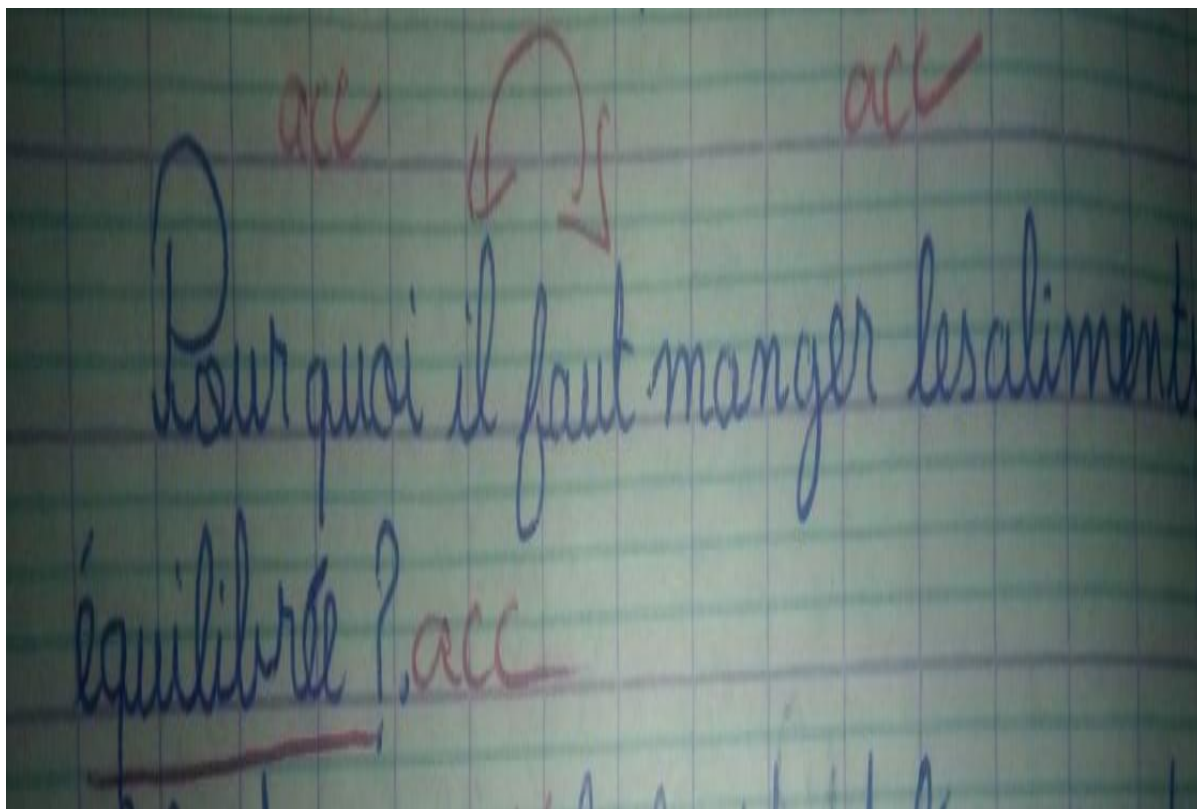 acc acc
Pourquoi il faut manger lesaliments
équilibrée ?. acc